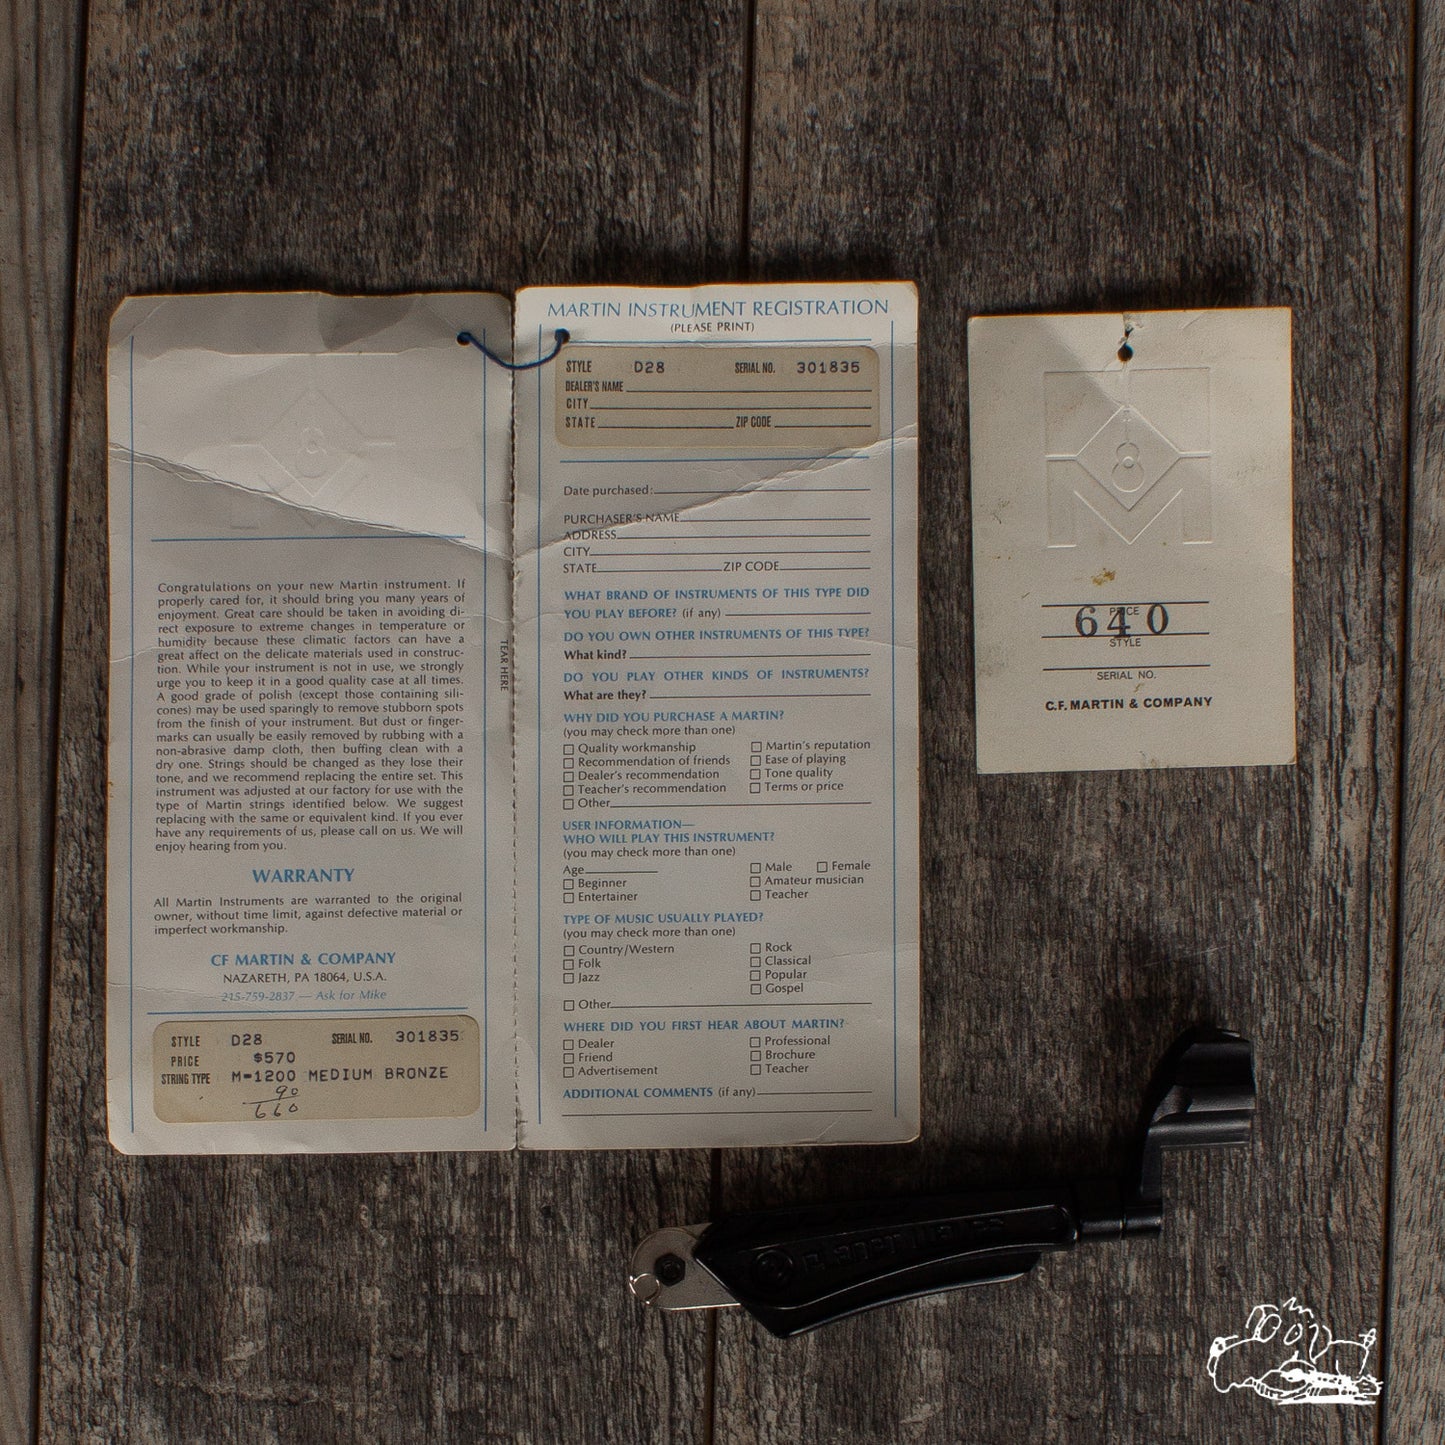 Congratulations on your new Martin instrument. If
properly cared for, it should bring you many years of
enjoyment. Great care should be taken in avoiding di-
rect exposure to extreme changes in temperature or
humidity because these climatic factors can have a
great affect on the delicate materials used in construc-
tion. While your instrument is not in use, we strongly
urge you to keep it in a good quality case at all times.
A good grade of polish (except those containing sili-
cones) may be used sparingly to remove stubborn spots
from the finish of your instrument. But dust or finger-
marks can usually be easily removed by rubbing with a
non-abrasive damp cloth, then buffing clean with a
dry one. Strings should be changed as they lose their
tone, and we recommend replacing the entire set. This
instrument was adjusted at our factory for use with the
type of Martin strings identified below. We suggest
replacing with the same or equivalent kind. If you ever
have any requirements of us, please call on us. We will
enjoy hearing from you.
WARRANTY
All Martin Instruments are warranted to the original
owner, without time limit, against defective material or
imperfect workmanship.
CF MARTIN & COMPANY
NAZARETH, PA 18064, U.S.A.
215-759-2837 — Ask for Mike
STYLE D28 SERIAL NO. 301835
PRICE $570
STRING TYPE M-1200 MEDIUM BRONZE
90
660
TEAR HERE
MARTIN INSTRUMENT REGISTRATION
(PLEASE PRINT)
STYLE D28 SERIAL NO. 301835
DEALER'S NAME
CITY
STATE ZIP CODE
Date purchased:
PURCHASER'S NAME
ADDRESS
CITY
STATE ZIP CODE
WHAT BRAND OF INSTRUMENTS OF THIS TYPE DID
YOU PLAY BEFORE? (if any)
DO YOU OWN OTHER INSTRUMENTS OF THIS TYPE?
What kind?
DO YOU PLAY OTHER KINDS OF INSTRUMENTS?
What are they?
WHY DID YOU PURCHASE A MARTIN?
(you may check more than one)
Quality workmanship Martin's reputation
Recommendation of friends Ease of playing
Dealer's recommendation Tone quality
Teacher's recommendation Terms or price
Other
USER INFORMATION—
WHO WILL PLAY THIS INSTRUMENT?
(you may check more than one)
Age Male Female
Beginner Amateur musician
Entertainer Teacher
TYPE OF MUSIC USUALLY PLAYED?
(you may check more than one)
Country/Western Rock
Folk Classical
Jazz Popular
Gospel
Other
WHERE DID YOU FIRST HEAR ABOUT MARTIN?
Dealer Professional
Friend Brochure
Advertisement Teacher
ADDITIONAL COMMENTS (if any)
PRICE
640
STYLE
SERIAL NO.
C.F. MARTIN & COMPANY
planet waves